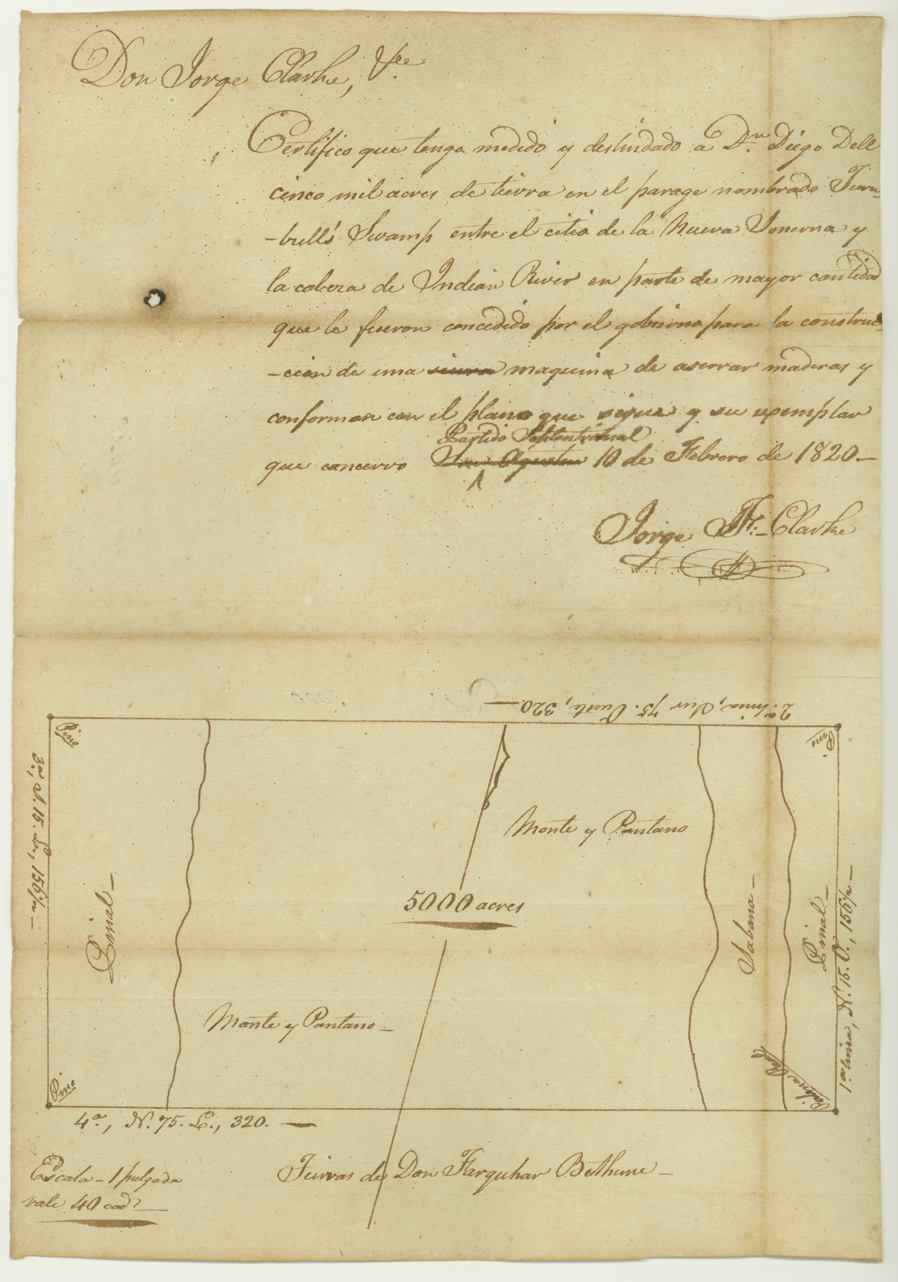 Don Jorge Clarke, &ce
Certifico que tengo medido y deslindado a Dn. Diego Dell
cinco mil acres de tierra en el parage nombrado Turn-
-bull's Swamp entre el citio de la Nueva Smerna y
la cabeza de Indian River en parte de mayor cantidad
que le fueron concedido por el gobierno para la construc-
-cion de una sierra maquina de aserrar maderas y
conforman con el plano que sigue y su exemplar
Partido Septentrional
que concervo San Agustin 10 de Febrero de 1820.—
Jorge F. Clarke
2a. linia, Sur 75. Oueste, 320.—
Pino
Pino
3a., al. 15. E., 156½—
Monte y Pantano
5000 acres
Pinal—
Sabana—
Pinal—
1a. linia, N. 15. O., 156½—
Monte y Pantano—
Pino
4a., N. 75. E., 320.—
Escala—1 pulgada
vale 40 cads.—
Tierras de Don Farquhar Bethune—